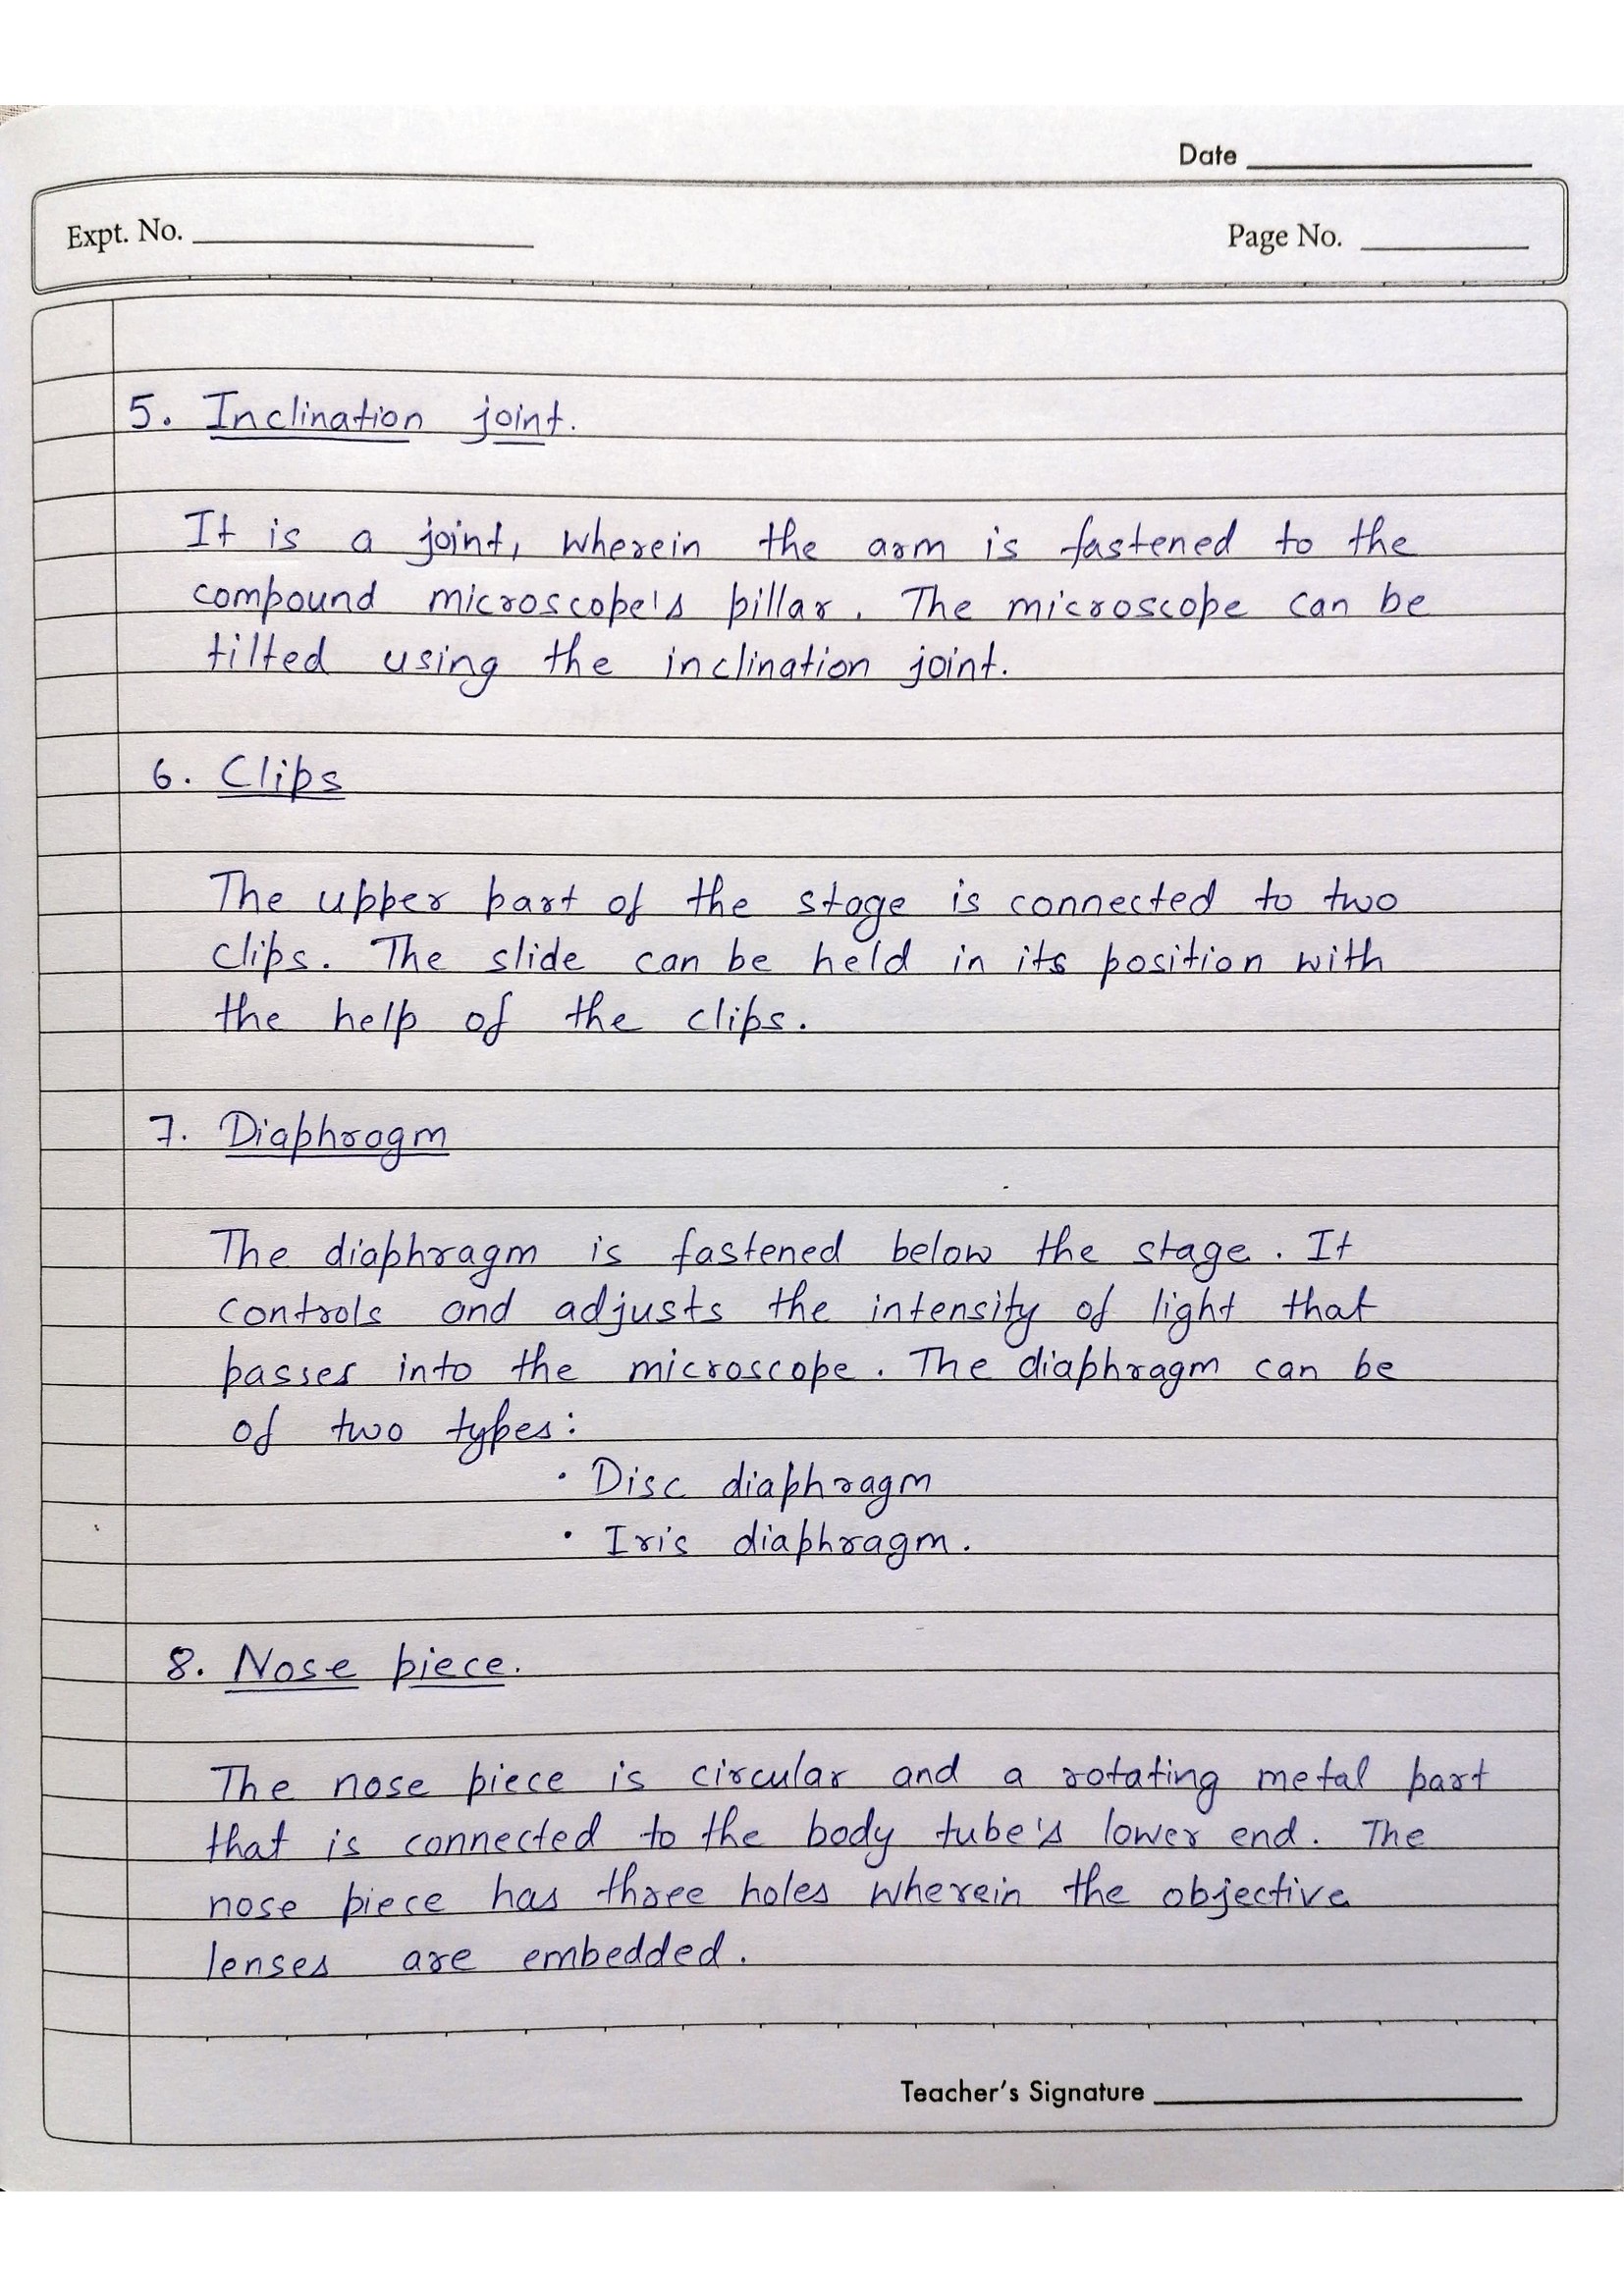 Date
Expt. No.
Page No.
5. Inclination joint.
It is a joint, wherein the arm is fastened to the
compound microscope's pillar. The microscope can be
tilted using the inclination joint.
6. Clips
The upper part of the stage is connected to two
clips. The slide can be held in its position with
the help of the clips.
7. Diaphragm
The diaphragm is fastened below the stage. It
controls and adjusts the intensity of light that
passes into the microscope. The diaphragm can be
of two types:
· Disc diaphragm
· Iris diaphragm.
8. Nose piece.
The nose piece is circular and a rotating metal part
that is connected to the body tube's lower end. The
nose piece has three holes wherein the objective
lenses are embedded.
Teacher's Signature